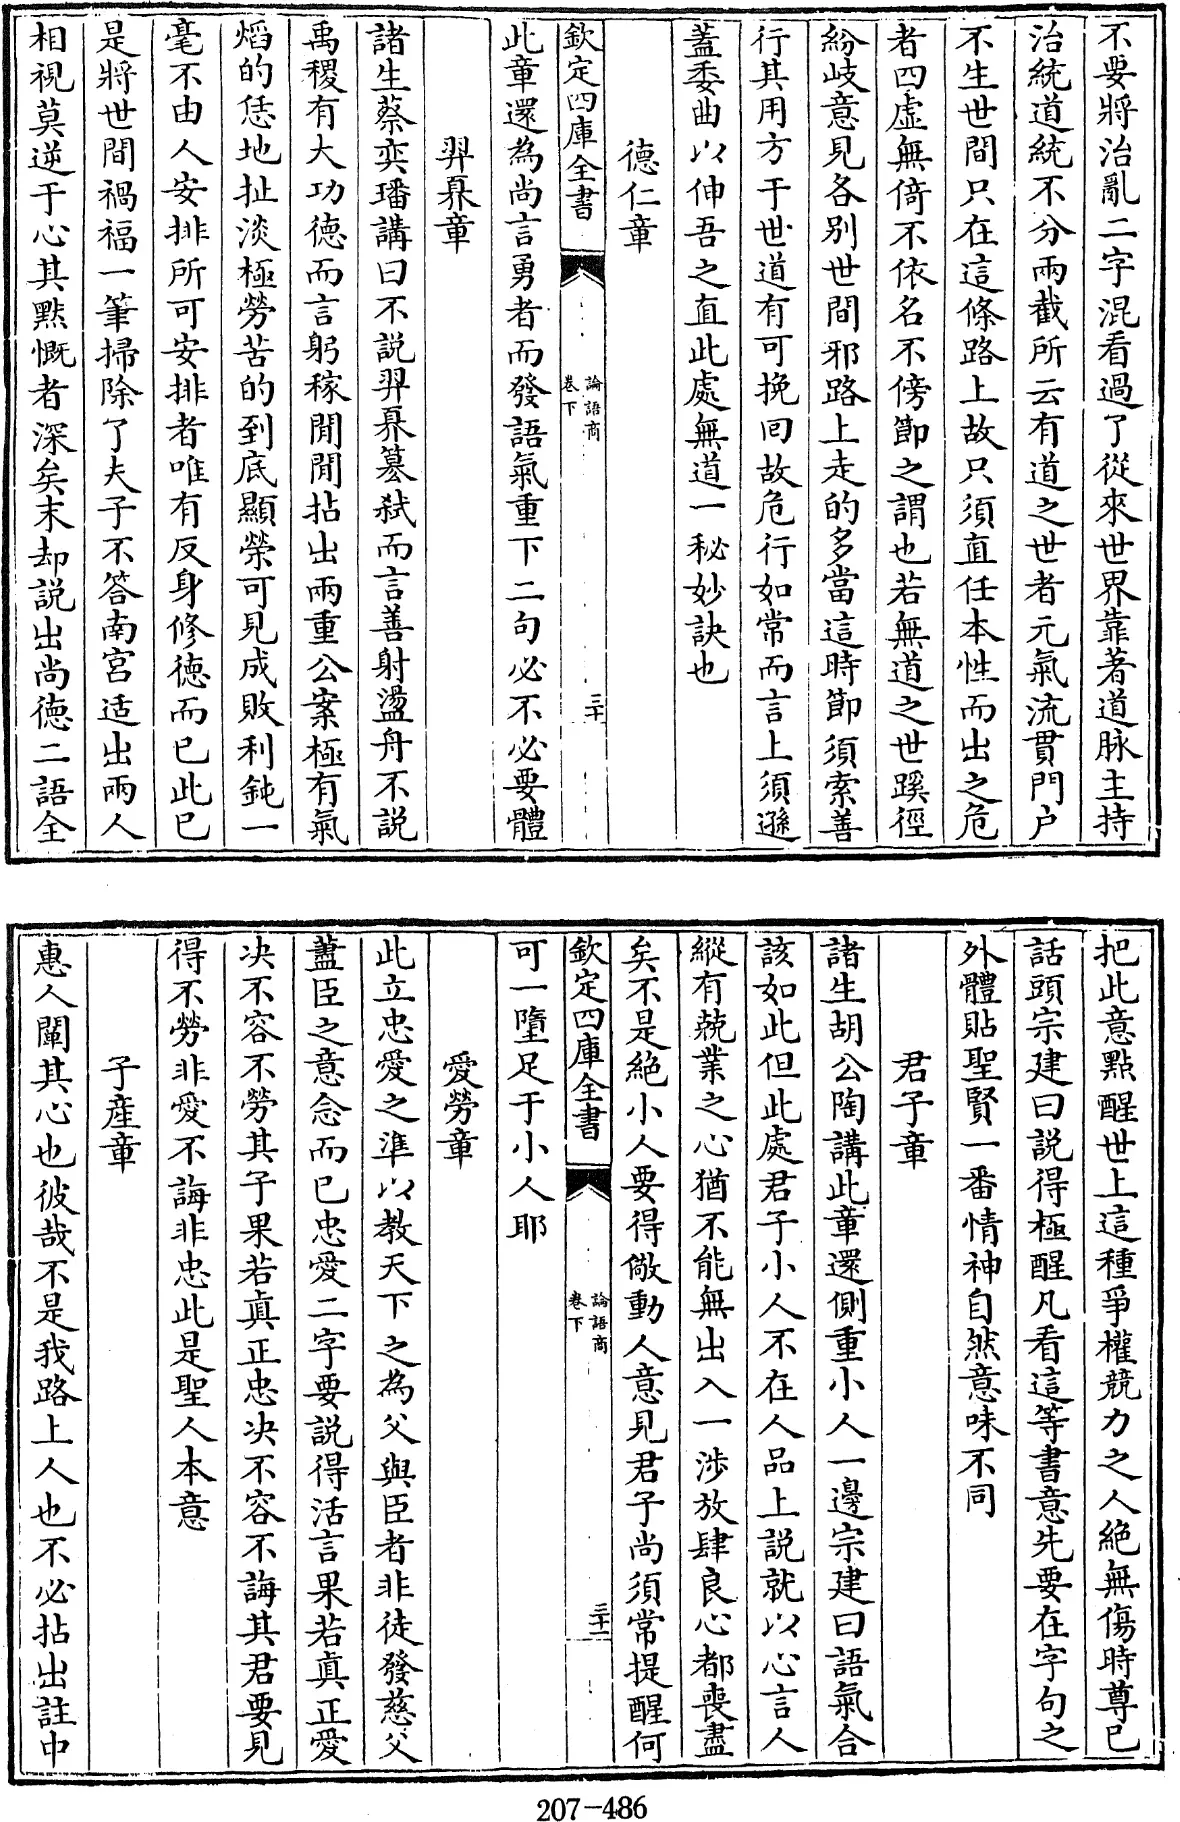 不要將治亂二字混看過了從來世界靠著道脉主持
治統道統不分兩截所云有道之世者元氣流貫門户
不生世間只在這條路上故只須直任本性而出之危
者四虛無倚不依名不傍節之謂也若無道之世蹊徑
紛歧意見各別世間邪路上走的多當這時節須索善
行其用方于世道有可挽回故危行如常而言上須遜
蓋委曲以伸吾之直此處無道一秘妙訣也
德仁章
欽定四庫全書
論語商
卷下
三十
此章還為尚言勇者而發語氣重下二句必不必要體
羿奡章
諸生蔡奕璠講曰不説羿奡簒弑而言善射盪舟不説
禹稷有大功德而言躬稼閒閒拈出兩重公案極有氣
熖的恁地扯淡極勞苦的到底顯榮可見成敗利鈍一
毫不由人安排所可安排者唯有反身修徳而已此已
是將世間禍福一筆掃除了夫子不答南宮适出兩人
相視莫逆于心其黙慨者深矣末却説出尚德二語全
把此意點醒世上這種爭權競力之人絶無傷時尊已
話頭宗建曰説得極醒凡看這等書意先要在字句之
外體貼聖賢一番情神自然意味不同
君子章
諸生胡公陶講此章還側重小人一邊宗建曰語氣合
該如此但此處君子小人不在人品上説就以心言人
縱有兢業之心猶不能無出入一涉放肆良心都喪盡
矣不是絶小人要得儆動人意見君子尚須常提醒何
欽定四庫全書
論語商
卷下
三十一
可一墮足于小人耶
愛勞章
此立忠愛之凖以教天下之為父與臣者非徒發慈父
藎臣之意念而已忠愛二字要説得活言果若真正愛
决不容不勞其子果若真正忠决不容不誨其君要見
得不勞非愛不誨非忠此是聖人本意
子産章
惠人闡其心也彼哉不是我路上人也不必拈出註中
207-486